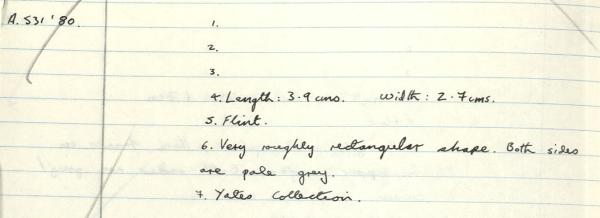 A. S31 '80. 1.
2.
3.
4. Length: 3.9 cms. Width: 2.7cms.
5. Flint.
6. Very roughly rectangular shape. Both sides
are pale grey.
7. Yates Collection.